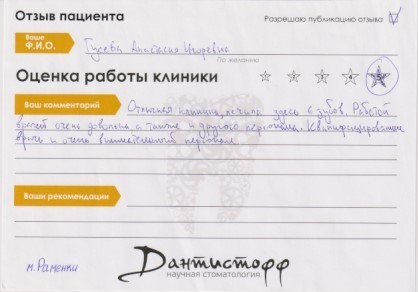 Отзыв пациента
Разрешаю публикацию отзыва
Ваше
Ф.И.О.
Гусева Анастасия Игоревна
По желанию
Оценка работы клиники
1 2 3 4 5
Ваш комментарий
Отличная клиника, лечила здесь 6 зубов. Работой
врачей очень довольна а также и другого персонала. Квалифицированные
врачи и очень внимательный персонал.
Ваши рекомендации
м. Раменки
Дантистофф
научная стоматология